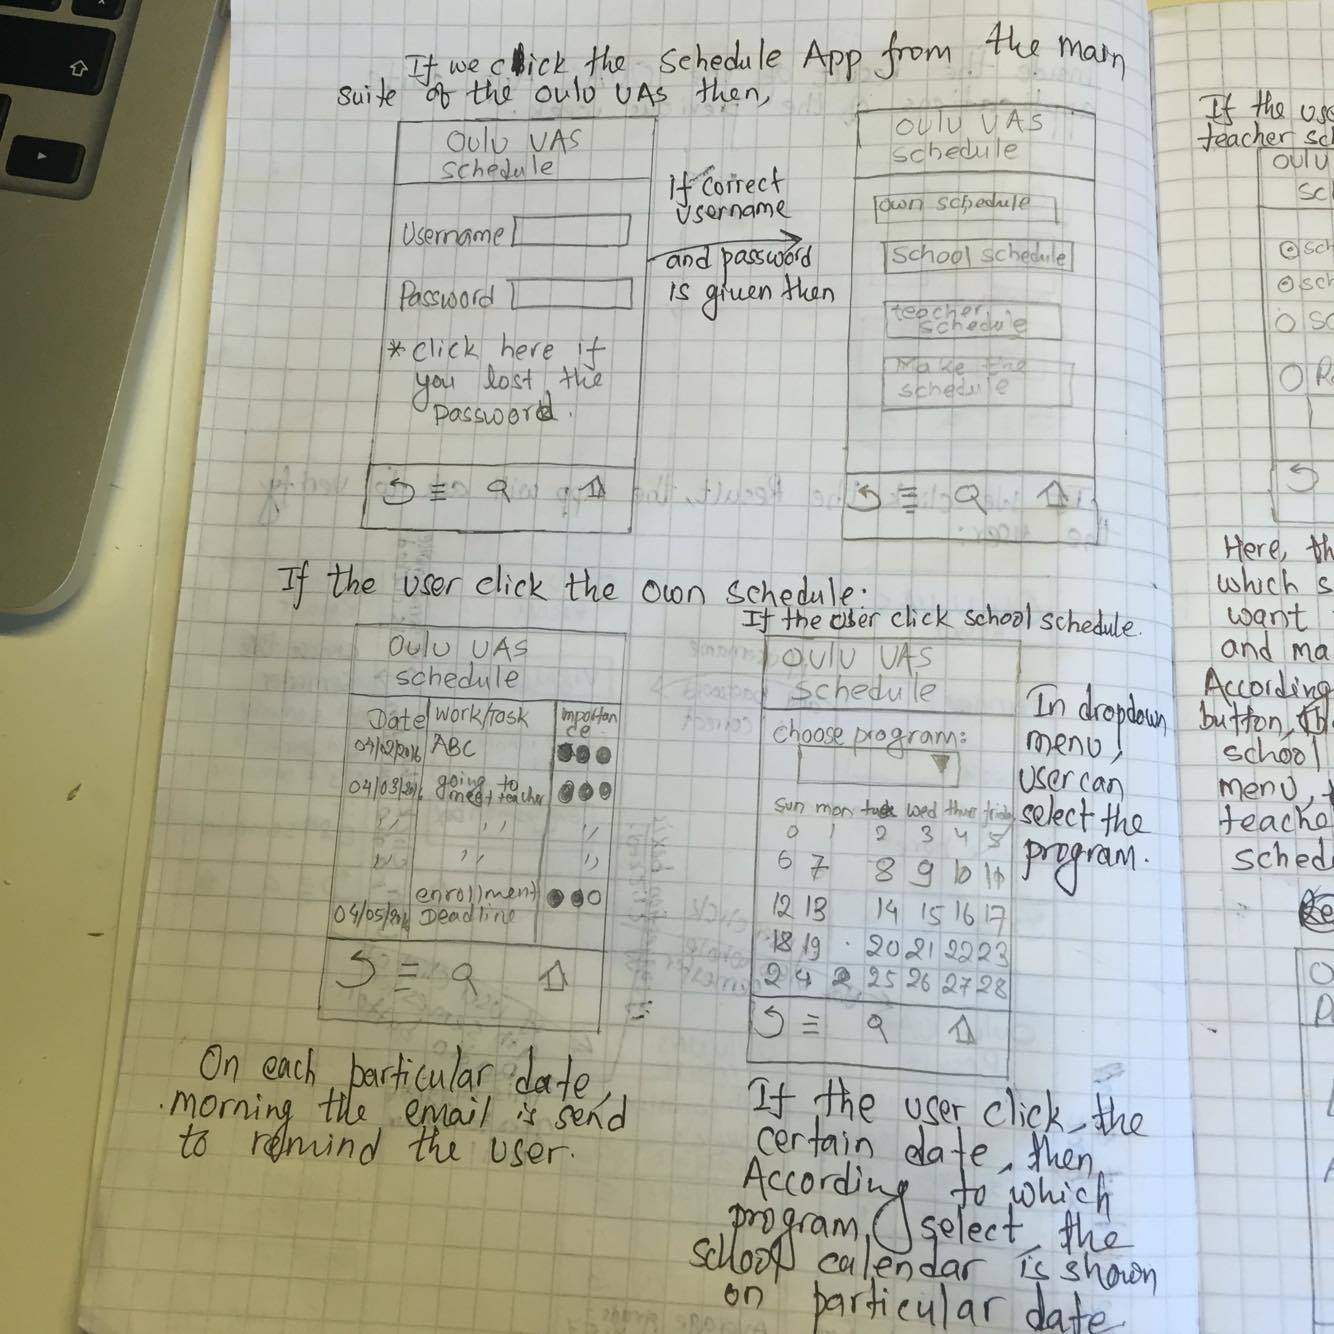 If we click the Schedule App from the main
suite of the Oulu UAS then,
Oulu UAS
schedule
Username
Password
* click here if
you lost the
password.
If correct
username
and password
is given then
Oulu UAS
schedule
own schedule
School schedule
teacher
schedule
Make the
schedule
If the user click the own schedule:
Oulu UAS
schedule
Date Work/Task Importan
ce
ABC
04/03/2016 going to
meet teacher
,, ,,
,, ,,
enrollment
04/05/2016 Deadline
On each particular date,
morning the email is send
to remind the user.
If the user click school schedule.
Oulu UAS
schedule
choose program:
Sun mon tues wed thur friday
0 1 2 3 4 5
6 7 8 9 10 11
12 13 14 15 16 17
18 19 20 21 22 23
24 25 26 27 28
In dropdown
menu,
user can
select the
program.
If the user click the
certain date, then,
According to which
program select the
school calendar is shown
on particular date
If the use
teacher sc
Oulu
sc
sch
sch
Sc
Here, th
which s
want
and ma
According
button, th
school
menu,
teache
sched